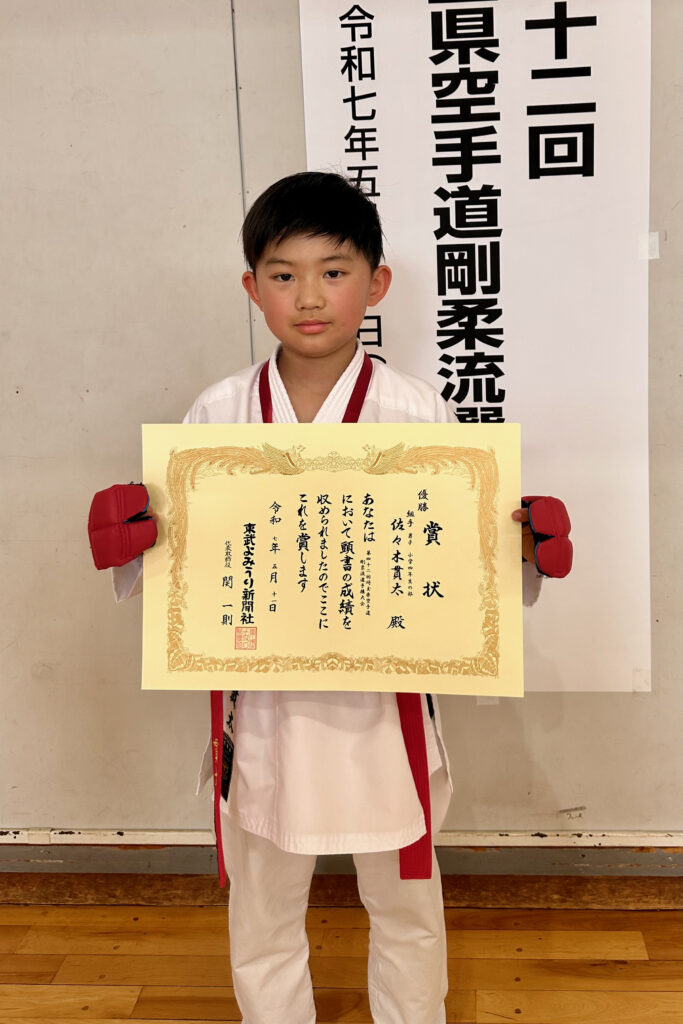 十二回
県空手道剛柔流選
令和七年五
日
賞状
優勝
組手 男子 小学四年生の部
佐々木貫太 殿
あなたは
第四十二回埼玉県空手道
剛柔流選手権大会
において頭書の成績を
収められましたのでここに
これを賞します
令和 七年 五月 十一日
東武よみうり新聞社
代表取締役 関 一則